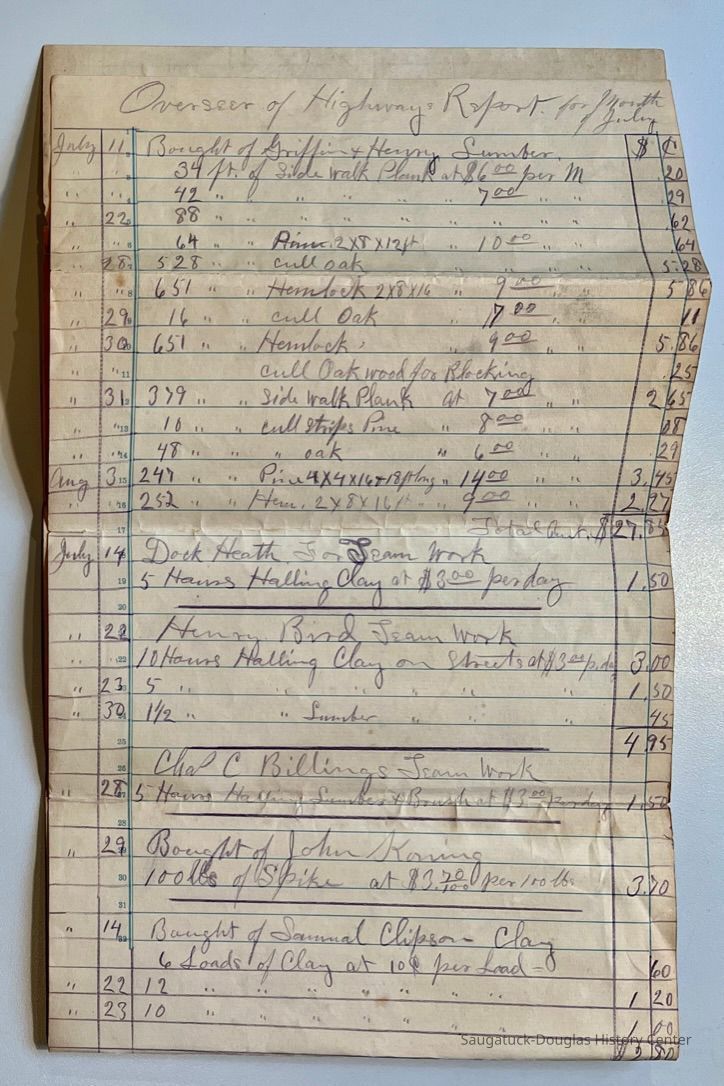 Overseer of Highways Report. for Month
of July
$ ¢
July 11 Bought of Griffin & Henry Lumber.
" " 34 ft. of Side walk Plank at $6 00 per M .20
" " 42 " " " " 7 00 " " .29
" 22 88 " " " " " " " .62
" " 64 " Pine 2X8X12ft " 10 00 " " .64
" 28 528 " " cull oak " " " 5.28
" " 651 " " Hemlock 2X8X16 " 9 00 " " 5 86
" 29 16 " " cull Oak 7 00 " " 11
" 30 651 " " Hemlock " " 9 00 " " 5.86
" " cull Oak wood for Blocking .25
" 31 379 " " Side walk Plank at 7 00 " " 2 65
" " 10 " " cull strips Pine 8 00 " " 08
" " 48 " " " oak " 6 00 " " 29
Aug 3 247 " " Pine 4X4X16+18ft long " 14 00 " " 3.45
" " 252 " " Hem. 2X8X16ft " 9 00 " " 2.27
Total Amt. $27.85
July 14 Dock Heath For Team Work
5 Hours Halling Clay at $3 00 per day 1.50
" 22 Henry Bird Team Work
" " 10 Hours Halling Clay on Streets at $3 00 p. day 3.00
" 23 5 " " " " " 1.50
" 30 1 1/2 " " Lumber " " 45
4.95
Chas C Billings Team Work
" 28 5 Hours Halling Lumber & Brush at $3 00 per day 1.50
" 29 Bought of John Koning
100 lbs of Spike at $3.70/100 per 100 lbs. 3.70
" 14 Bought of Samual Clipson Clay
6 Loads of Clay at 10¢ per Load – 60
" 22 12 " " " " " " 1 20
" 23 10 " " " " " 1 00
$2 80
Saugatuck-Douglas History Center